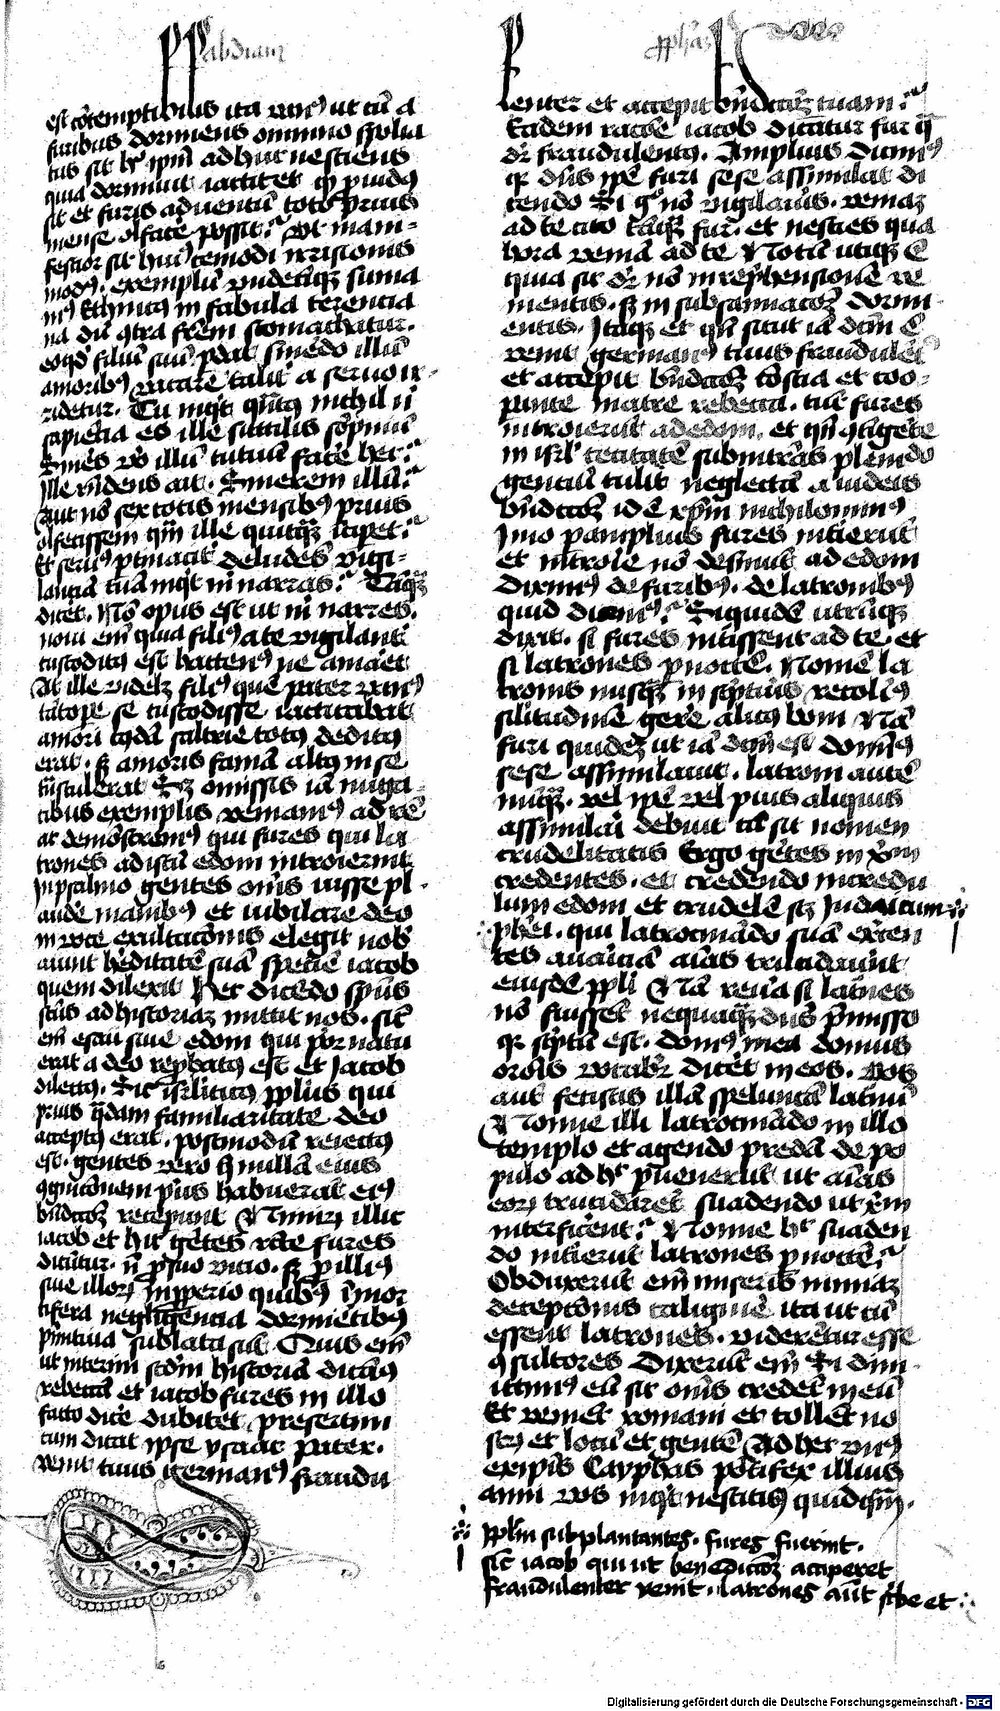 Abdiam
est contemptibilius ita unus ut cum a
furibus dormiens omnino spolia
tus sit hoc ipsum adhuc nesciens
quia dormiuit iactitet
sit et furis aduentum toto prius
mense olfacere possit? Ut mani-
festior sit huiuscemodi irrisionis
modus. exemplum
ethnicus in fabula terencia
na dum contra fratrem stomachatur.
eoquod filium suum perdat sinendo illum
amoribus vacare taliter a seruo ir-
ridetur. Tu inquit quantus nichil nisi
sapiencia es ille futtilis sompnium
Sineres vero illum tuum facere hec?
Ille respondens ait. Sinerem illum?
Aut non sex totis mensibus prius
olfecissem quam ille quicquam ceperit?
Et seruus deludens vigi-
lanciam tuam inquit michi narras? Tamquam
dicens. Non opus est ut michi narres.
noui enim quia filius a te vigilanter
custoditus est hactenus ne amaret
At ille videlicet filius quem pater unus
tantopere se custodisse iactitabat
amori cuiusdam totus deditus
erat. sed amoris famam alter in se
transtulerat Sed omissis iam nuga-
cibus exemplis veniamus ad rem
ac demonstremus qui fures qui la
trones ad istum edom introierint
In psalmo gentes omnes iusse pl-
audere manibus et iubilare deo
in voce exultacionis elegit nobis
aiunt hereditatem suam speciem iacob
quem dilexit Hec dicendo spiritus
sanctus ad historiam mittit nos. sicut
enim esau siue edom qui prior natus
erat a deo reprobatus est et Jacob
dilectus. Sic israeliticus populus qui
prius quadam familiaritate deo
acceptus erat. postmodum reiectus
est. gentes vero que nullam eius
cognicionem prius habuerant eius
benedictionem receperunt Nimirum illic
iacob et hic gentes recte fures
dicuntur. non pro suo vicio. sed pro illius
siue illorum Improperio quibus
tifera negligencia dormientibus
sublata sunt Quis enim
ut interim secundum historiam dictum
rebeccam et iacob fures in illo
facto dicere dubitet presertim
cum dicat ipse ysaac pater.
venit tuus germanus fraudu
Prophetas
lenter et accepit benedictionem tuam?
Eadem racione iacob dicatur fur qua
dicitur fraudulentus. Amplius dicimus
quia dominus ipse furi sese assimilat di
cendo Si ergo non vigilaueris. veniam
ad te cito tamquam fur. et nescies qua
hora veniam ad te Notum utique est
quia sic dicitur non in reprehensionem ve
nientis. sed in subsannacionem dormi
entis. Itaque et quando sicut iam dictum est
venit germanus tuus fraudulenter
et accepit benedictionem conscia et coo-
perante matre rebecca. tunc fures
introierunt ad edom. et quando contigerit
in israel cecitatem subintrans plenitudo
gentium tulit neglectam a iudeis
benedictionem id est christum nichilominus
Imo per amplius fures intrierunt
et introire non desinunt ad edom
Diximus de furibus. de latronibus
quid dicimus? Siquidem utrumque
dixit. si fures intrissent ad te. et
si latrones per noctem. Nomen la
tronis nusquam in scripturis recolimus
similitudinem gerere alicuius boni Nam
furi quidem ut iam dictum est dominus
sese assimilauit. latroni autem
numquam. vel ipse vel pius aliquis
assimilari debuit cum sit nomen
crudelitatis Ergo gentes in christum
credentes. et credendo incredu
lum edom et crudelem scilicet Judaicum
qui latrocinando suam exercen
tes auariciam animas trucidauerunt
eiusdem populi Nam reuera si latrones
non fuissent nequaquam dominus premisso
quia scriptum est. domus mea domus
oracionis vocabitur diceret in eos. vos
autem fecistis illam speluncam latronum
Nonne illi latrocinando in illo
templo et agendo predam de po
pulo ad hoc peruenerunt ut animas
eorum trucidarent suadendo ut christum
interficerent? Nonne hoc suaden
do intrierunt latrones per noctem?
Obduxerunt enim miseris nimiam
decepcionis caliginem ita ut cum
essent latrones. viderentur esse
consultores Dixerunt enim Si dimi-
ttimus eum sic omnes credent in eum
Et venient romani et tollent no
strum et locum et gentem Ad hec unus
ex ipsis Cayphas pontifex illius
anni vos inquit nescitis quidquam.
populum subplantantes. fures fuerint.
sicut iacob qui ut benedictionem acciperet
fraudulenter venit. latrones autem scribe et
Digitalisierung gefördert durch die Deutsche Forschungsgemeinschaft - DFG